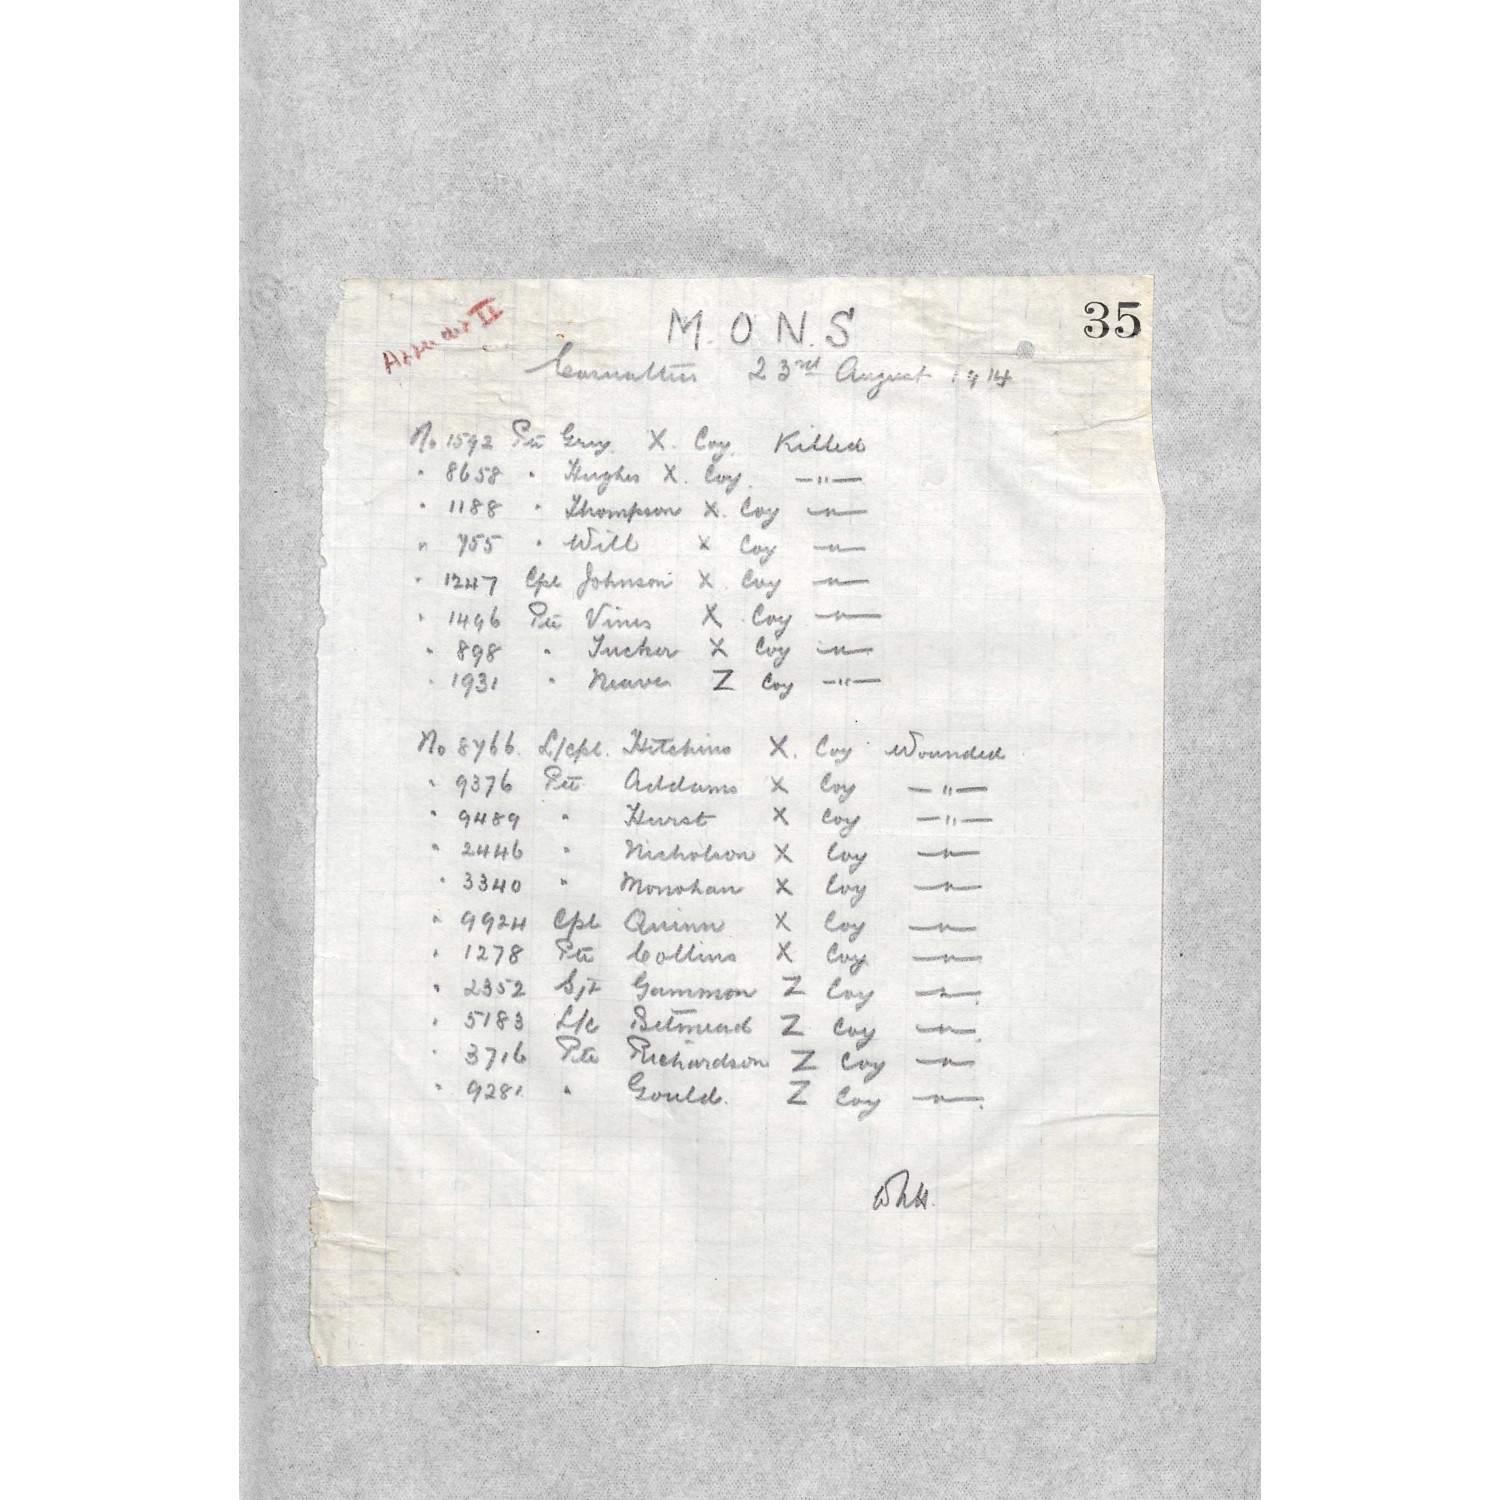 Appendix II
35
M.O.N.S
Casualties 23rd August 1914
No 1592 Pte Gray. X. Coy. Killed
" 8658 " Hughes X. Coy. —"—
" 1188 " Thompson X. Coy —"—
" 755 " Will X Coy —"—
" 1247 Cpl Johnson X. Coy —"—
" 1496 Pte Vines X Coy —"—
" 898 " Tucker X Coy —"—
" 1931 " Neaves Z Coy —"—
No 8766. L/cpl. Hitchins X. Coy Wounded
" 9376 Pte Addams X Coy —"—
" 9489 " Hurst X Coy —"—
" 2446 " Nicholson X Coy —"—
" 3340 " Monohan X Coy —"—
" 9924 Cpl Quinn X Coy —"—
" 1278 Pte Collins X Coy —"—
" 2352 Sjt Gammon Z Coy —"—
" 5183 L/c Betmead Z Coy —"—
" 3716 Pte Richardson Z Coy —"—
" 9281 " Gould. Z Coy —"—